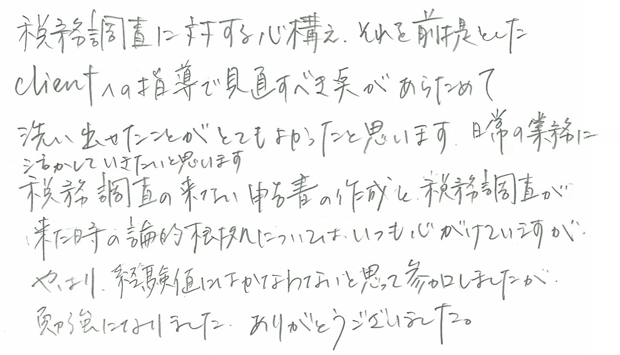 税務調査に対する心構え、それを前提とした
clientへの指導で見直すべき点があらためて
洗い出せたことがとてもよかったと思います。日常の業務に
活かしていきたいと思います
税務調査の来ない申告書の作成と税務調査が
来た時の論的根拠についてはいつも心がけていますが
やはり、経験値にはかなわないと思って参加しましたが
勉強になりました。ありがとうございました。